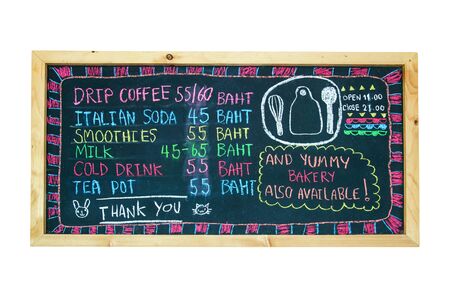 DRIP COFFEE 55/60 BAHT
ITALIAN SODA 45 BAHT
SMOOTHIES 55 BAHT
MILK 45-65 BAHT
COLD DRINK 55 BAHT
TEA POT 55 BAHT
THANK YOU
OPEN 18.00
CLOSE 23.00
AND YUMMY
BAKERY
ALSO AVAILABLE!